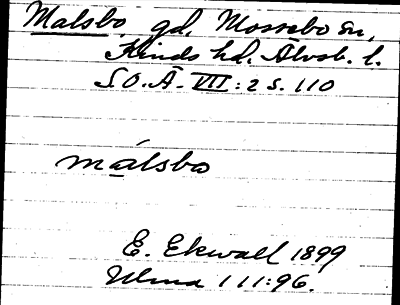 Malsbo, gd. Mossebo sn,
Kinds hd. Älvsb. l.
S.O.Ä. VII:2 s. 110
målsbo
E. Ekwall 1899
Ulma 111:96.